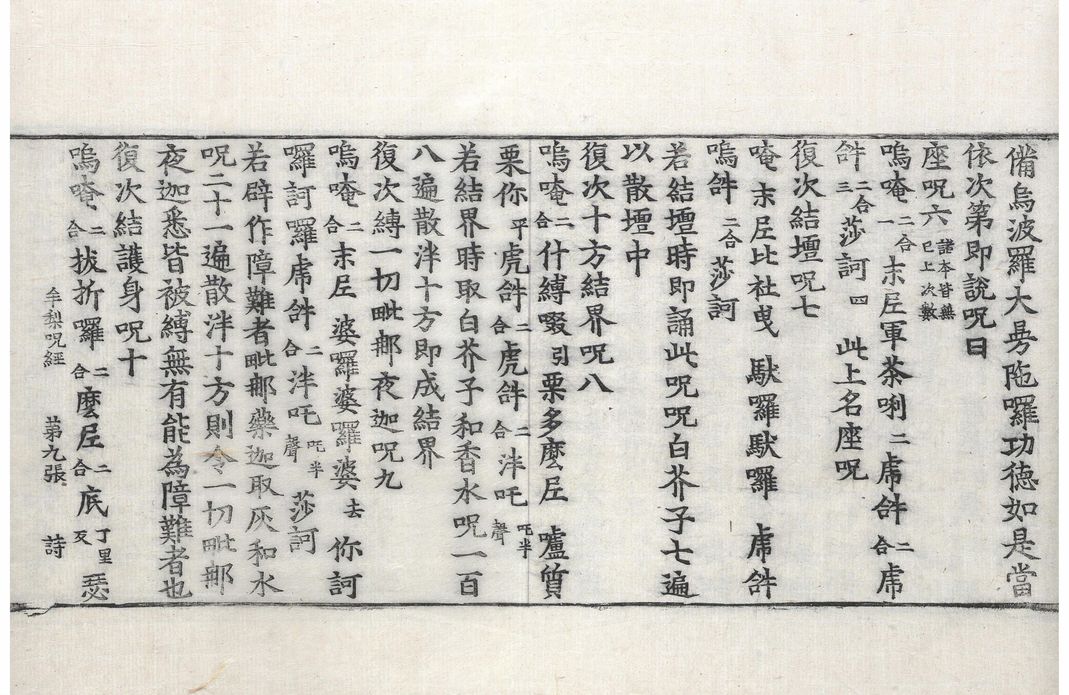 備烏波羅大曼陁羅功德如是當
依次第即說呪曰
座呪六 諸本皆無已上次數
嗚唵二合一末𡰱軍荼唎二虎𤙖二合虎
𤙖二合三莎訶四 此上名座呪
復次結壇呪七
唵 末𡰱比社曳 馱羅馱囉 虎𤙖
嗚𤙖二合 莎訶
若結壇時即誦此呪呪白芥子七遍
以散壇中
復次十方結界呪八
嗚唵二合什縛啜引栗多麼𡰱 嚧質
栗你平虎𤙖二合虎𤙖二合泮吒吒半聲
若結界時取白芥子和香水呪一百
八遍散泮十方即成結界
復次縛一切毗那夜迦呪九
嗚唵二合末𡰱 婆囉婆囉婆去 你訶
囉訶囉虎𤙖二合泮吒吒半聲 莎訶
若辟作障難者毗那藥迦取灰和水
呪二十一遍散泮十方則令一切毗那
夜迦悉皆被縛無有能為障難者也
復次結護身呪十
嗚唵二合拔折囉二合麼𡰱二合底丁里反瑟
牟梨呪經 第九張 詩